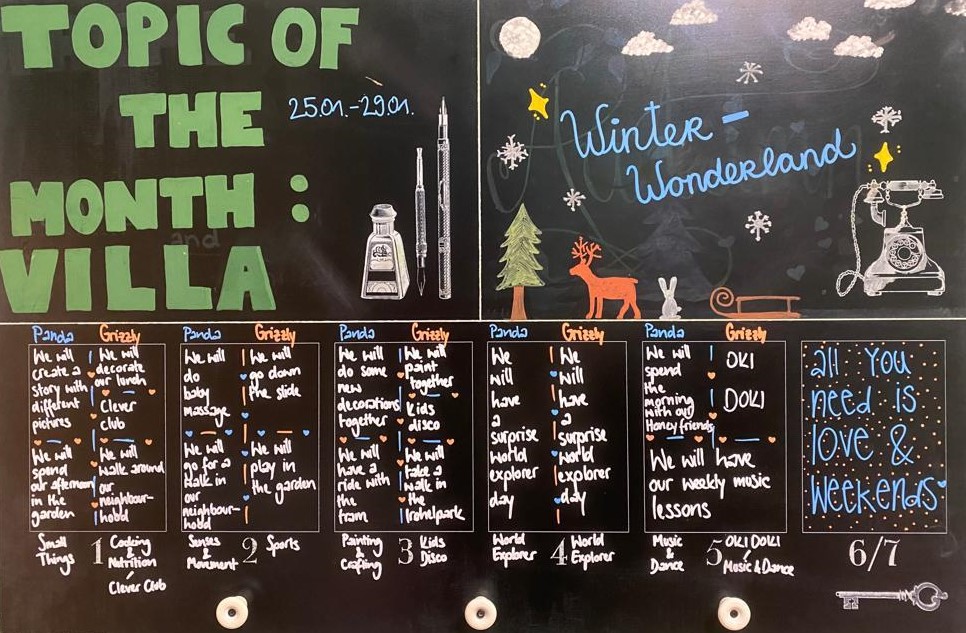 TOPIC OF
THE
MONTH :
and
VILLA
25.01.-29.01.
Winter-
Wonderland
Panda
We will
create a
story with
different
pictures
We will
spend
our afternoon
in the
garden
Grizzly
We will
decorate
our lunch
Clever
club
We will
walk around
our
neighbour-
hood
Small
Things
1
Cooking
&
Nutrition
/
Clever Club
Panda
We will
do
baby
massage
We will
go for a
walk in
our
neighbour-
hood
Grizzly
We will
go down
the slide
We will
play in
the garden
Senses
&
Movement
2
Sports
Panda
We will
do some
new
decorations
together
We will
have a
ride with
the
tram
Grizzly
We will
paint
together
Kids
disco
We will
take a
walk in
the
Painting
&
Crafting
3
Kids
Disco
Panda
We
will
have
a
surprise
world
explorer
day
Grizzly
We
will
have
a
surprise
world
explorer
day
World
Explorer
4
World
Explorer
Panda
We will
spend
the
morning
with our
Honey friends
Grizzly
OKI
DOKI
We will have
our weekly music
lessons
Music
&
Dance
5
OKI DOKI
/
Music & Dance
all you
need is
love &
weekends
6/7